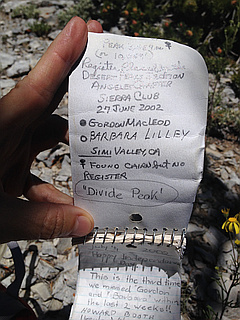 PEAK
Register Placed by
DESERT PEAKS SECTION
ANGELES CHAPTER
SIERRA CLUB
27 JUNE 2002
GORDON MACLEOD
BARBARA LILLEY
SIMI VALLEY, CA
FOUND CAIRN BUT NO
REGISTER
"Divide Peak"
Happy to
This is the third time
we missed 'Gordon'
and 'Barbara' within
the last 2 weeks!!
HOWARD BOOTH